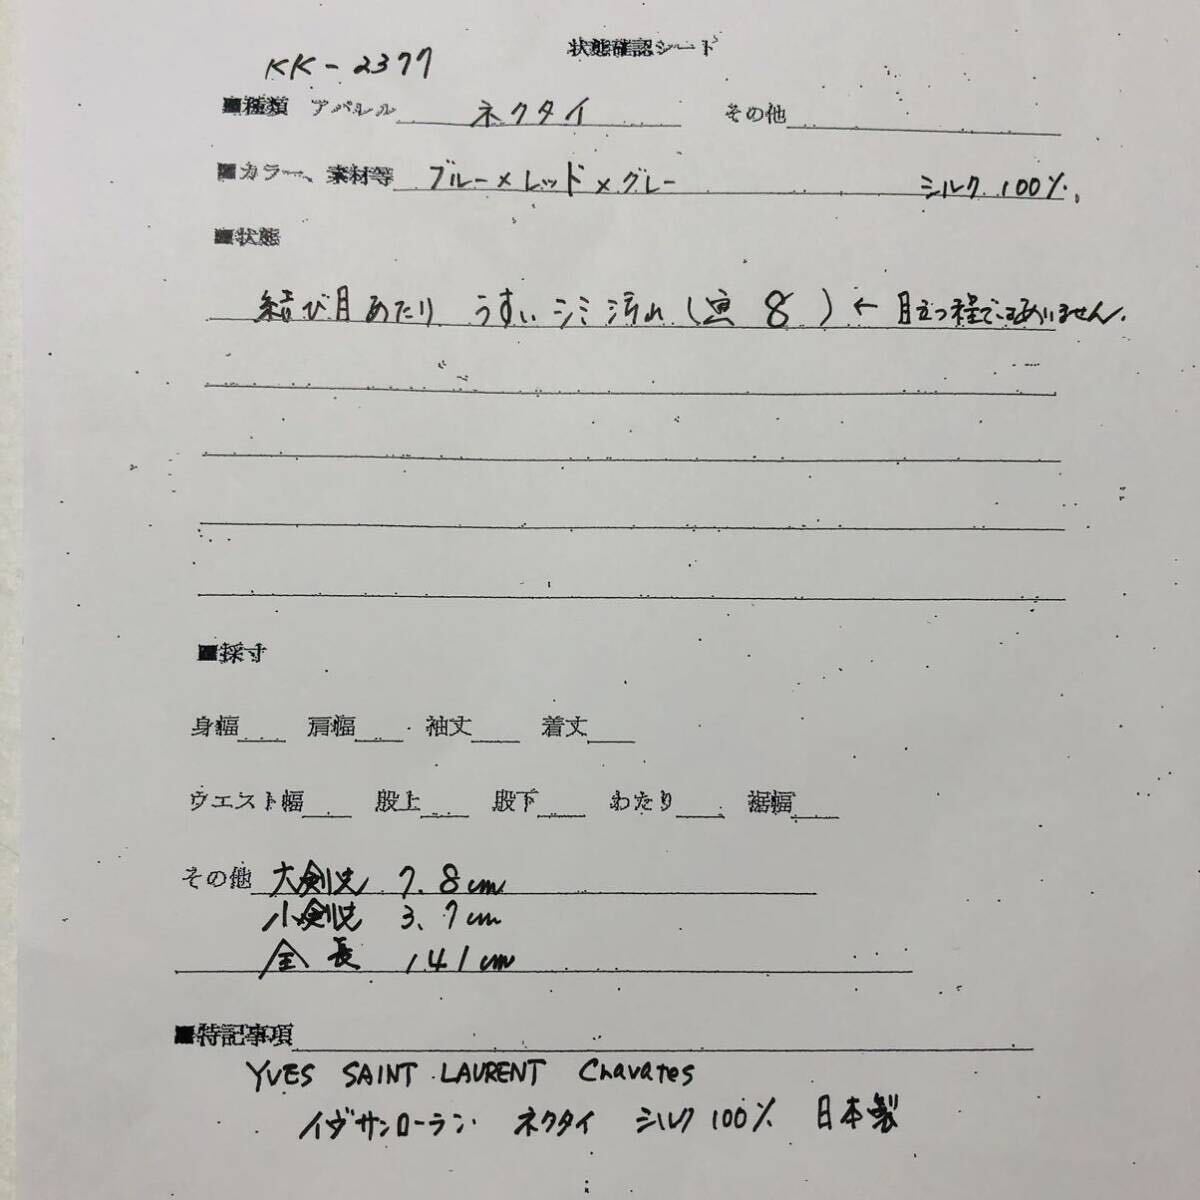 状態確認シート
KK-2377
■種類 アパレル ネクタイ その他
■カラー、素材等 ブルー×レッド×グレー シルク 100%.
■状態
結び目あたり うすいシミ汚れ (画 8 ) ← 目立つ程ではありません.
■採寸
身幅 肩幅 袖丈 着丈
ウエスト幅 股上 股下 わたり 裾幅
その他 大剣先 7.8cm
小剣先 3.7cm
全長 141cm
■特記事項
YVES SAINT LAURENT Chavates
イヴサンローラン ネクタイ シルク100% 日本製